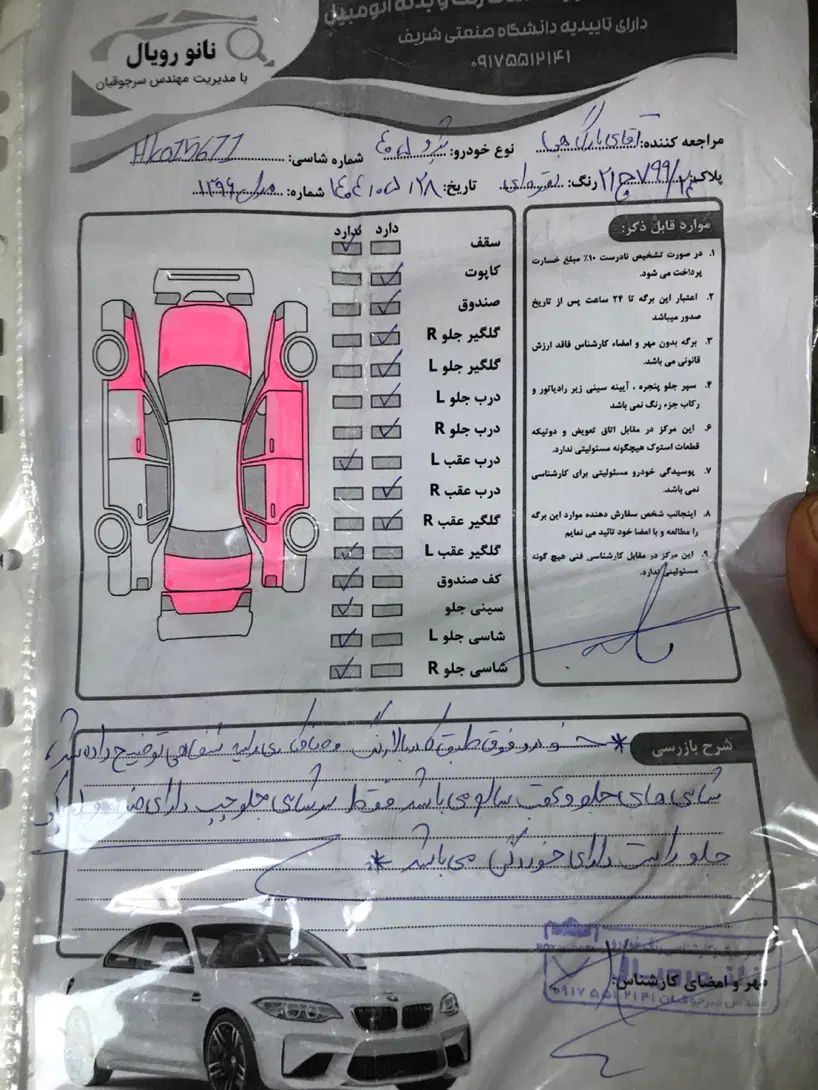 نانو رویال
با مدیریت مهندس سرجوقیان
دارای تاییدیه دانشگاه صنعتی شریف
۰۹۱۷۵۵۱۲۱۴۱
مراجعه کننده: آقای
نوع خودرو: پژو ۴۰۵
شماره شاسی: HK025671
پلاک:
رنگ: نقره‌ای
تاریخ: ۲۸
شماره: مدل ۱۳۹۶
دارد ندارد
سقف
کاپوت
صندوق
گلگیر جلو R
گلگیر جلو L
درب جلو L
درب جلو R
درب عقب L
درب عقب R
گلگیر عقب R
گلگیر عقب L
کف صندوق
سینی جلو
شاسی جلو L
شاسی جلو R
موارد قابل ذکر:
۱. در صورت تشخیص نادرست ۱۰٪ مبلغ خسارت
پرداخت می شود.
۲. اعتبار این برگه تا ۲۴ ساعت پس از تاریخ
صدور میباشد
۳. برگه بدون مهر و امضاء کارشناس فاقد ارزش
قانونی می باشد.
۴. سپر جلو پنجره ، آیینه سینی زیر رادیاتور و
رکاب جزء رنگ نمی باشد
۶. این مرکز در مقابل اتاق تعویض و دوتیکه
قطعات استوک هیچگونه مسئولیتی ندارد.
۷. پوسیدگی خودرو مسئولیتی برای کارشناسی
نمی باشد.
۸. اینجانب شخص سفارش دهنده موارد این برگه
را مطالعه و با امضا خود تائید می نمایم
۹. این مرکز در مقابل کارشناسی فنی هیچ گونه
مسئولیتی ندارد.
شرح بازرسی
* خودرو فوق طبق کد بالا رنگ و صافکاری بقیه شفاهی توضیح داده شد،
شاسی های جلو و عقب سالم می باشد فقط سرشاسی جلو چپ دارای
جلو راست دارای خوردگی می باشد *
مهر و امضای کارشناس:
۰۹۱۷۵۵۱۲۱۴۱